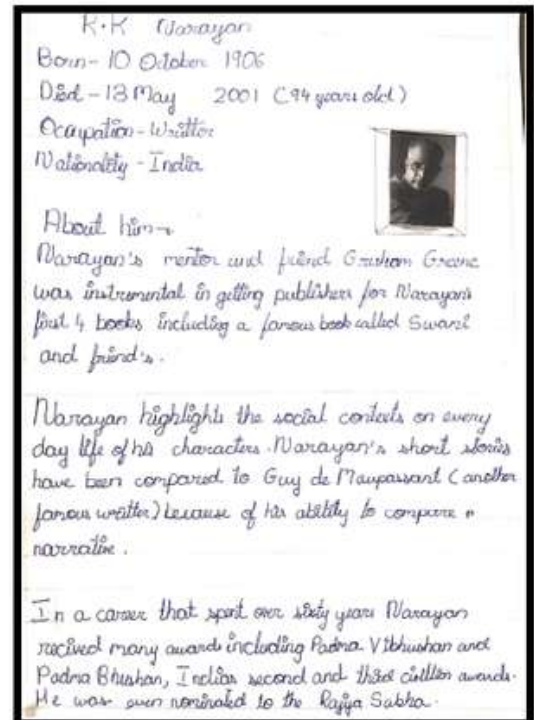 K.K Narayan
Born- 10 October 1906
Died - 13 May 2001 (94 years old)
Ocupation - Writter
Nationality - India
About him→
Narayan's mentor and friend Graham Greene
was instrumental in getting publishers for Narayan's
first 4 books including a famous book called Swami
and friend's.
Narayan highlights the social contexts on every
day life of his characters. Narayan's short stories
have been compared to Guy de Maupassant (another
famous writter) because of his ability to compare
narrative.
In a career that spent over sixty years Narayan
recived many award including Padma Vibhushan and
Padma Bhushan, Indias second and third civilian awards.
He was even nominated to the Rajya Sabha.